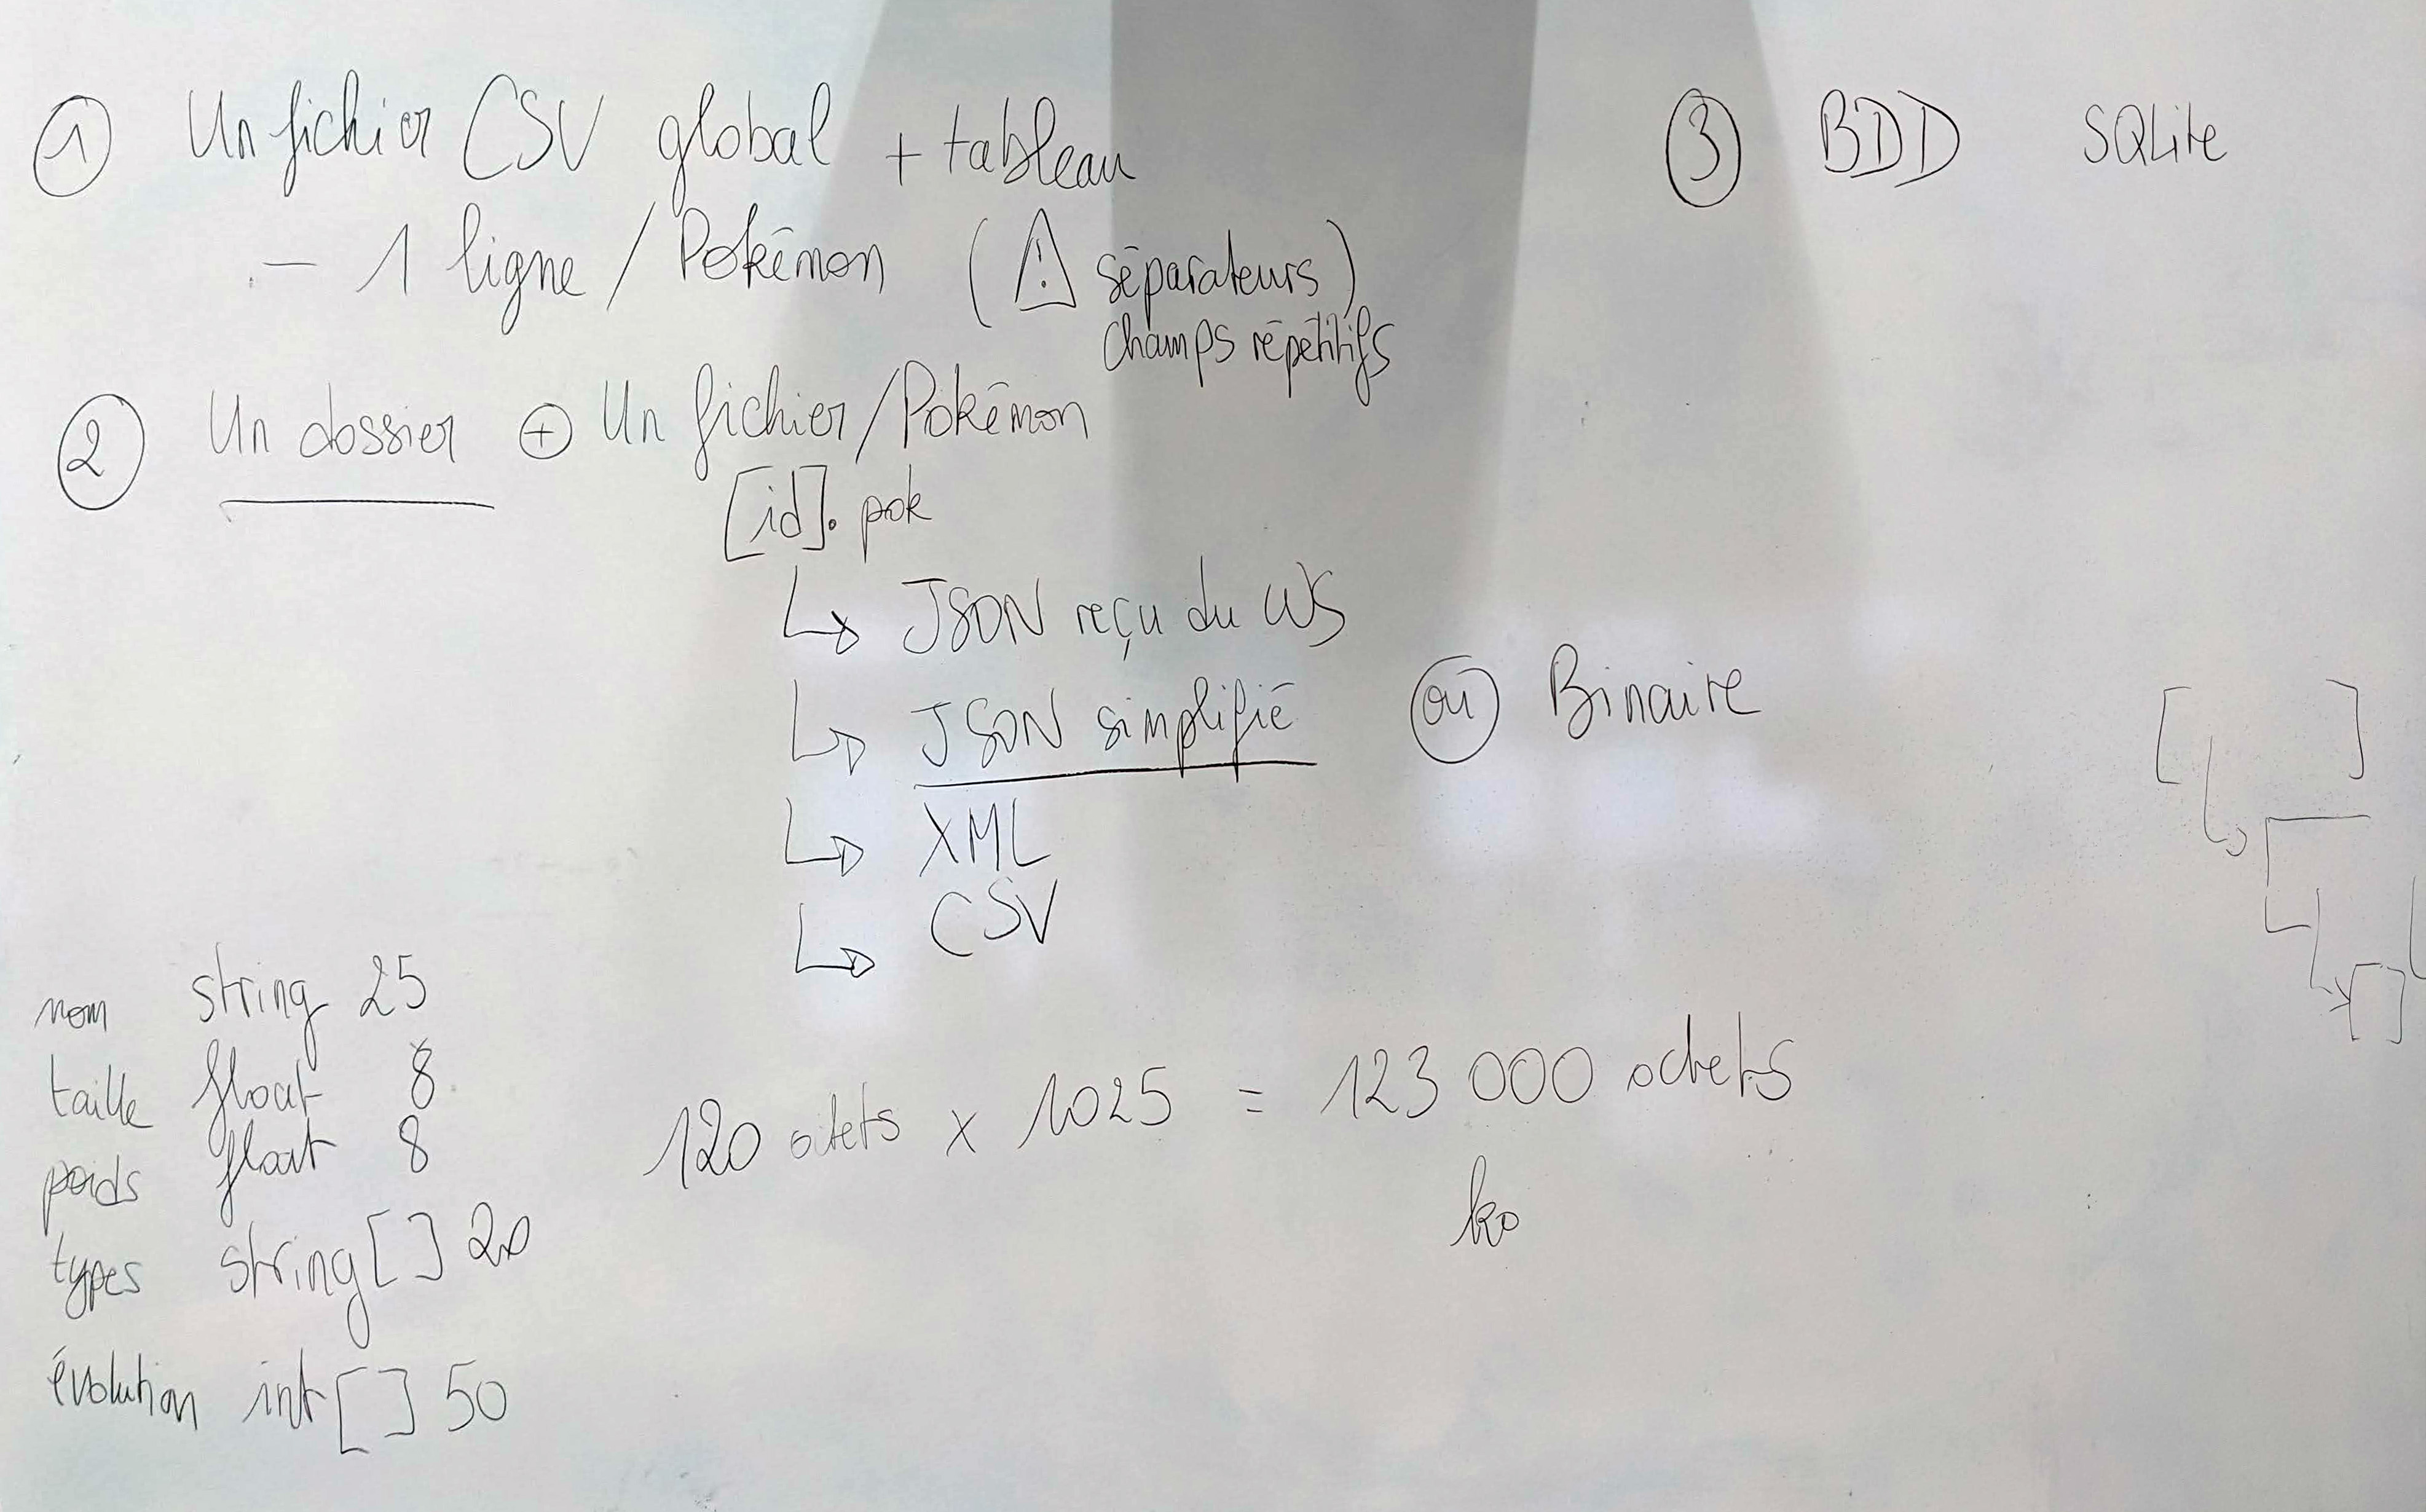 ① Un fichier CSV global + tableau
- 1 ligne / Pokémon (⚠ séparateurs)
champs répétitifs
② Un dossier ⊕ Un fichier/Pokémon
[id].pok
↳ JSON reçu du WS
↳ JSON simplifié (ou) Binaire
↳ XML
↳ CSV
③ BDD SQLite
nom string 25
taille float 8
poids float 8
types string[] 20
évolution int[] 50
120 octets x 1025 = 123 000 octets
ko